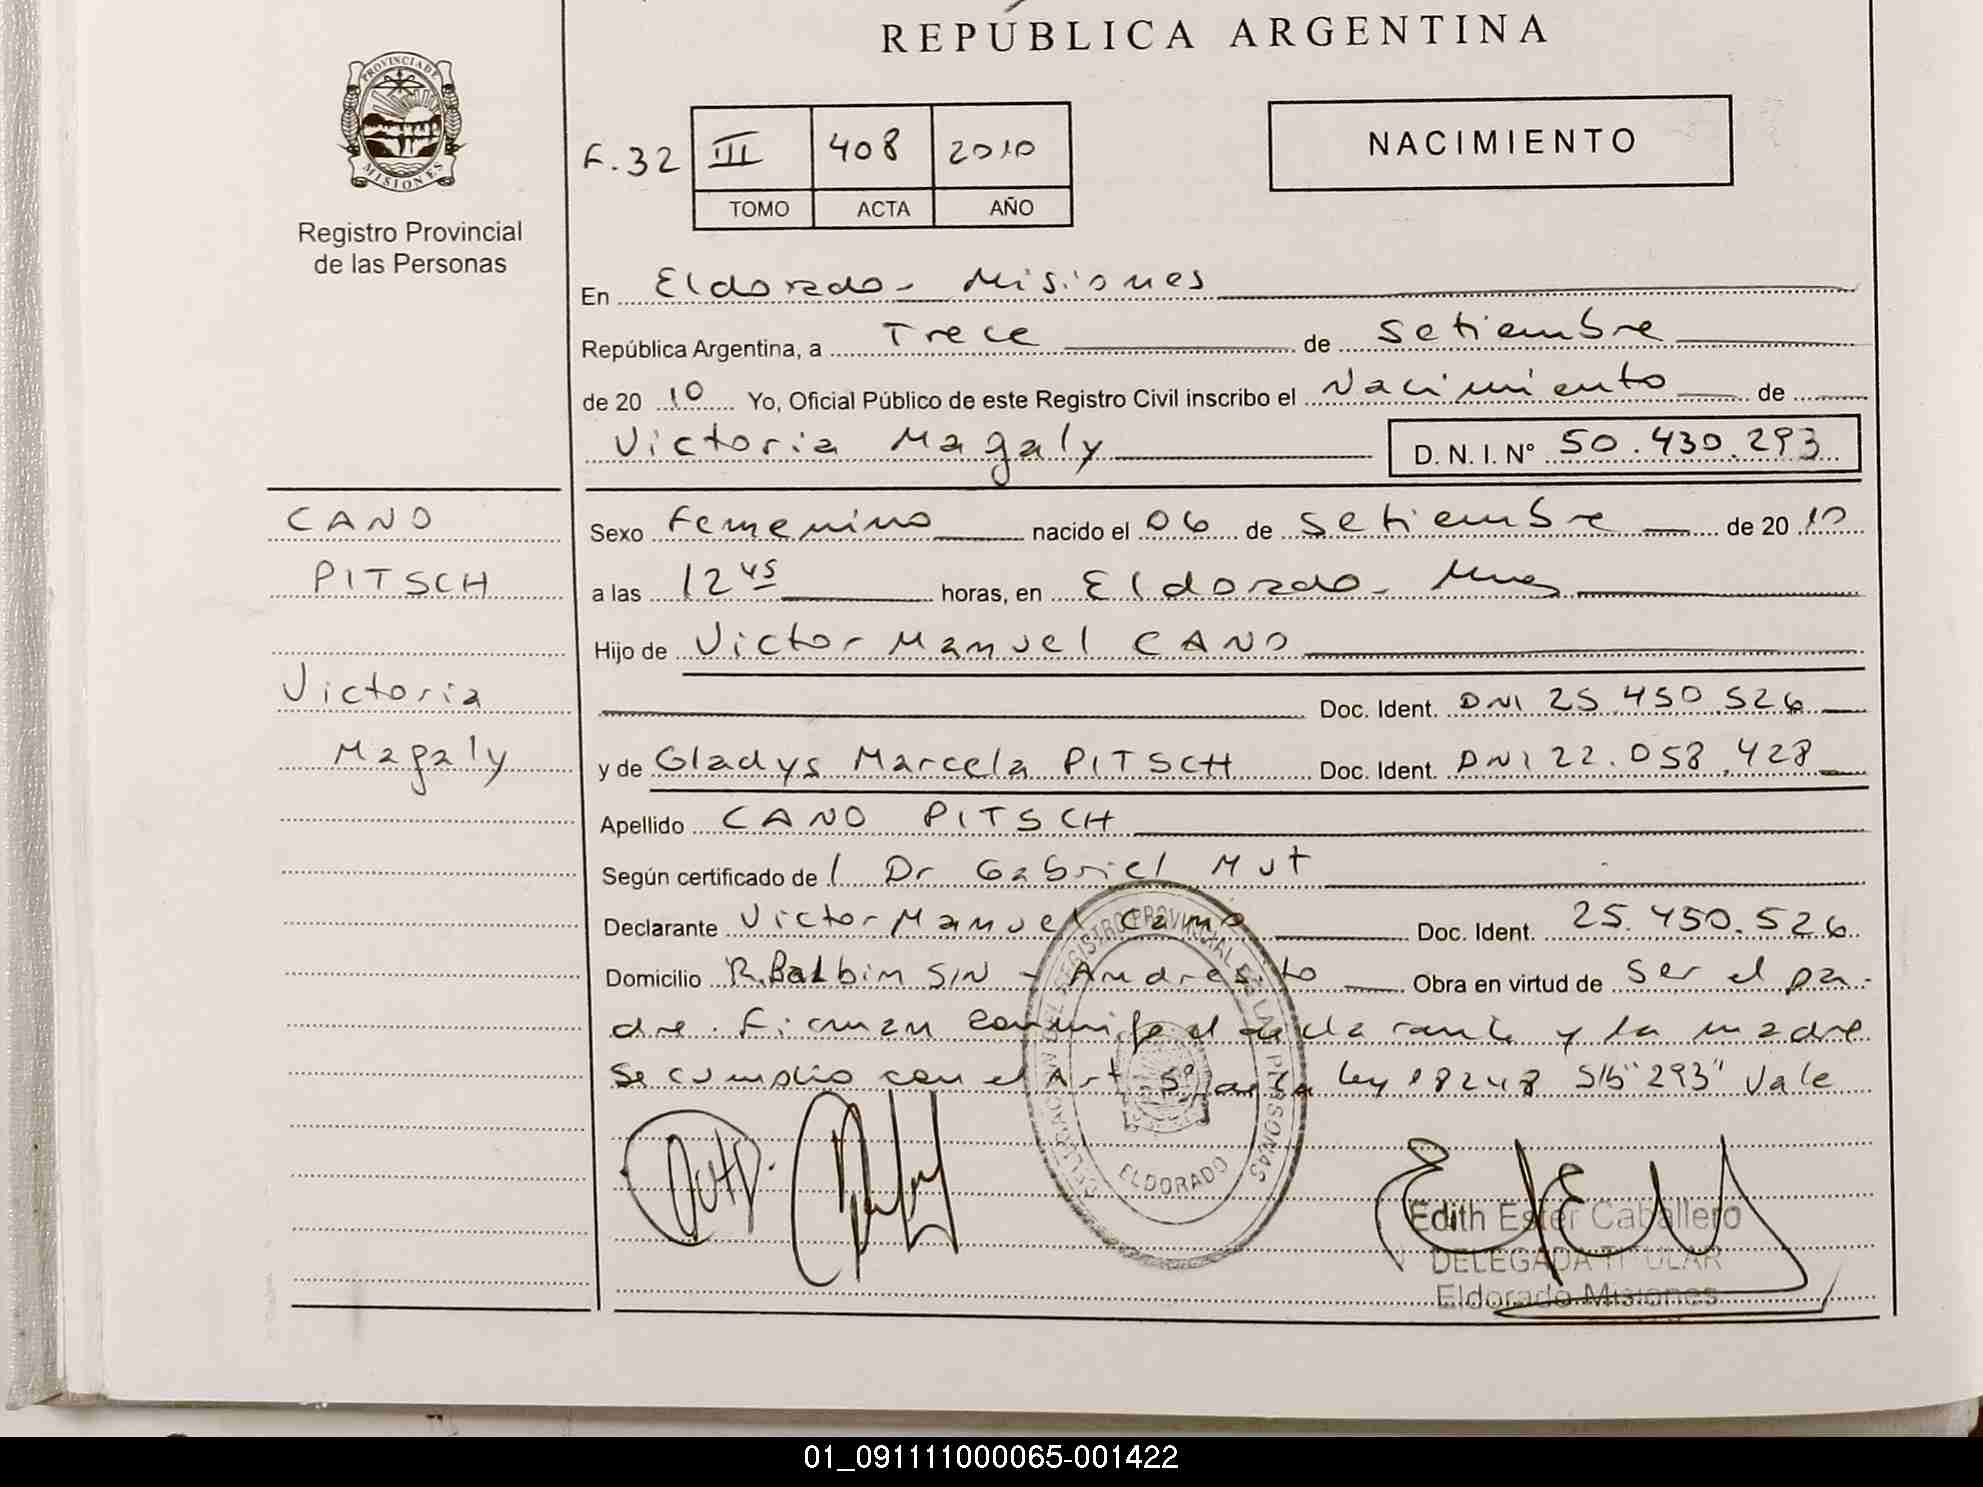 REPÚBLICA ARGENTINA
PROVINCIA DE
MISIONES
Registro Provincial
de las Personas
F. 32 III 408 2010
TOMO ACTA AÑO
NACIMIENTO
En Eldorado - Misiones
República Argentina, a Trece de Setiembre
de 20 10 Yo, Oficial Público de este Registro Civil inscribo el Nacimiento de
Victoria Magaly D. N. I. Nº 50.430.293
CANO
PITSCH
Victoria
Magaly
Sexo Femenino nacido el 06 de Setiembre de 20 10
a las 12 45 horas, en Eldorado - Mnes
Hijo de Victor Manuel CANO
Doc. Ident. DNI 25.450.526
y de Gladys Marcela PITSCH Doc. Ident. DNI 22.058.428
Apellido CANO PITSCH
Según certificado de l Dr Gabriel Mut
Declarante Victor Manuel Cano Doc. Ident. 25.450.526
Domicilio R. Balbin S/N - Andresito Obra en virtud de ser el pa-
dre. Firman conmigo el declarante y la madre
Se cumplio con el Art 5º de la Ley 18248 S/b "293" Vale
REGISTRO PROVINCIAL DE LAS PERSONAS
ELDORADO
Edith Ester Caballero
DELEGADA TITULAR
Eldorado Misiones
01_091111000065-001422